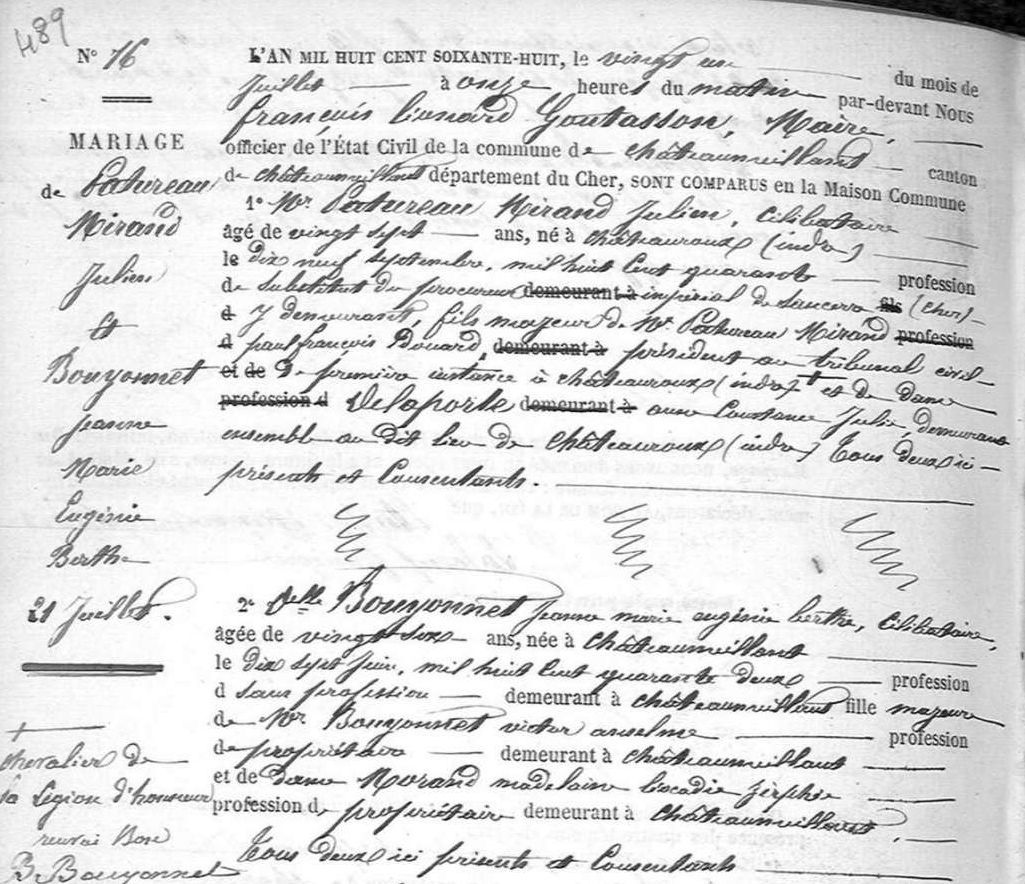 489
N° 76
MARIAGE
de Patureau
Mirand
Julien
et
Bouyonnet
jeanne
Marie
Eugénie
Berthe
21 Juillet.
L'AN MIL HUIT CENT SOIXANTE-HUIT, le vingt un du mois de
Juillet à onze heures du matin par-devant Nous
françois Léonard Maire,
officier de l'État Civil de la commune de châteaumeillant canton
de châteaumeillant département du Cher, SONT COMPARUS en la Maison Commune
1° Mr Patureau Mirand Julien, célibataire
âgé de vingt sept ans, né à châteauroux (indre)
le dix neuf septembre, mil huit cent quarante profession
de substitut du procureur demeurant à impérial de Sancerre fils (cher)
d y demeurant, fils majeur de Mr. Patureau Mirand profession
d paul françois Edouard, demeurant à président au tribunal civil
et de de première instance à châteauroux (indre) + et de dame
profession d Delaporte demeurant à anne Constance Julie, demeurant
ensemble au dit lieu de châteauroux (indre) Tous deux ici
présents et Consentants.
2° Delle Bouyonnet jeanne marie eugénie berthe, célibataire,
âgée de vingt six ans, née à châteaumeillant
le dix sept juin, mil huit cent quarante deux profession
d sans profession demeurant à châteaumeillant fille majeure
de Mr. Bouyonnet victor anselme profession
de propriétaire demeurant à châteaumeillant
et de dame Morand madelaine léocadie
profession d, propriétaire demeurant à châteaumeillant,
Tous deux ici présents et Consentants
+
chevalier de
la légion d'honneur
renvoi Bon
B. Bouyonnet